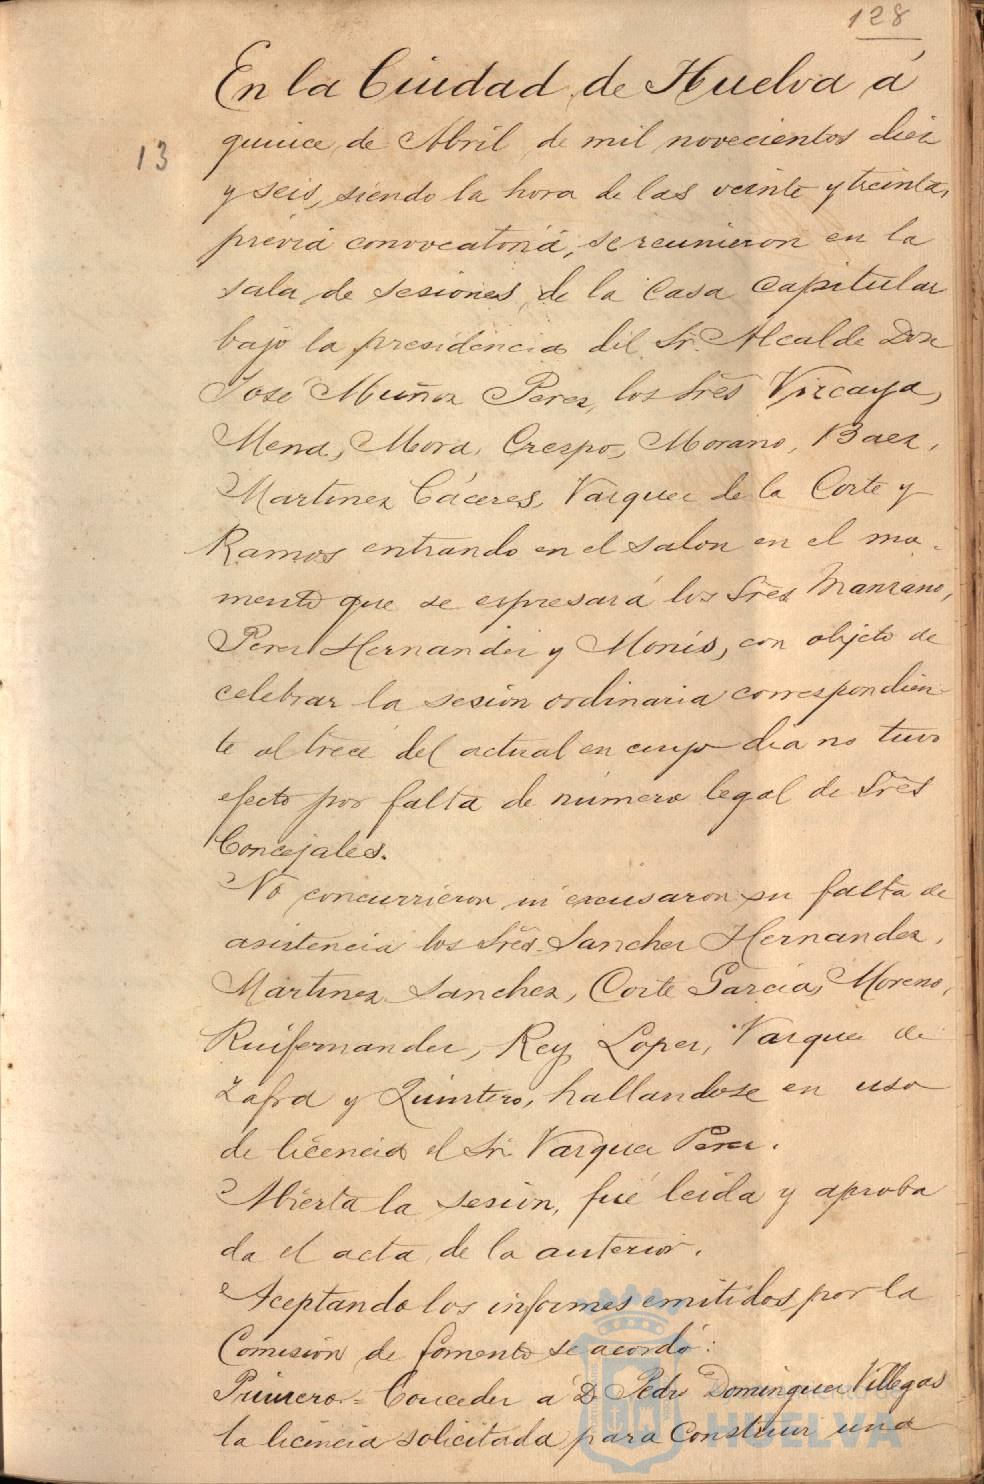 128
En la Ciudad de Huelva á
13
quince de Abril de mil novecientos diez
y seis, siendo la hora de las veinte y treinta,
previa convocatoria, se reunieron en la
sala de sesiones de la Casa Capitular
bajo la presidencia del Sr. Alcalde Don
José Muñoz Perez, los Sres Vizcaya,
Mena, Mora, Crespo, Morano, Baez,
Martinez Cáceres, Vazquez de la Corte y
Ramos entrando en el salon en el mo-
mento que se espresará los Sres Manzano,
Perez Hernandez y Monís, con objeto de
celebrar la sesión ordinaria correspondien
te al trece del actual en cuyo dia no tuvo
efecto por falta de número legal de Sres
Concejales.
No concurrieron ni excusaron su falta de
asistencia los Sres. Sanchez Hernandez,
Martinez Sanchez, Corte Garcia, Moreno,
Ruifernandez, Rey Lopez, Vazquez de
Zafra y Quintero, hallandose en uso
de licencia el Sr. Vazquez Perez.
Abierta la sesión, fué leida y aproba
da el acta de la anterior.
Aceptando los informes emitidos por la
Comisión de fomento se acordó:
Primero = Conceder a D. Pedro Dominguez Villegas
la licencia solicitada para construir una
HUELVA